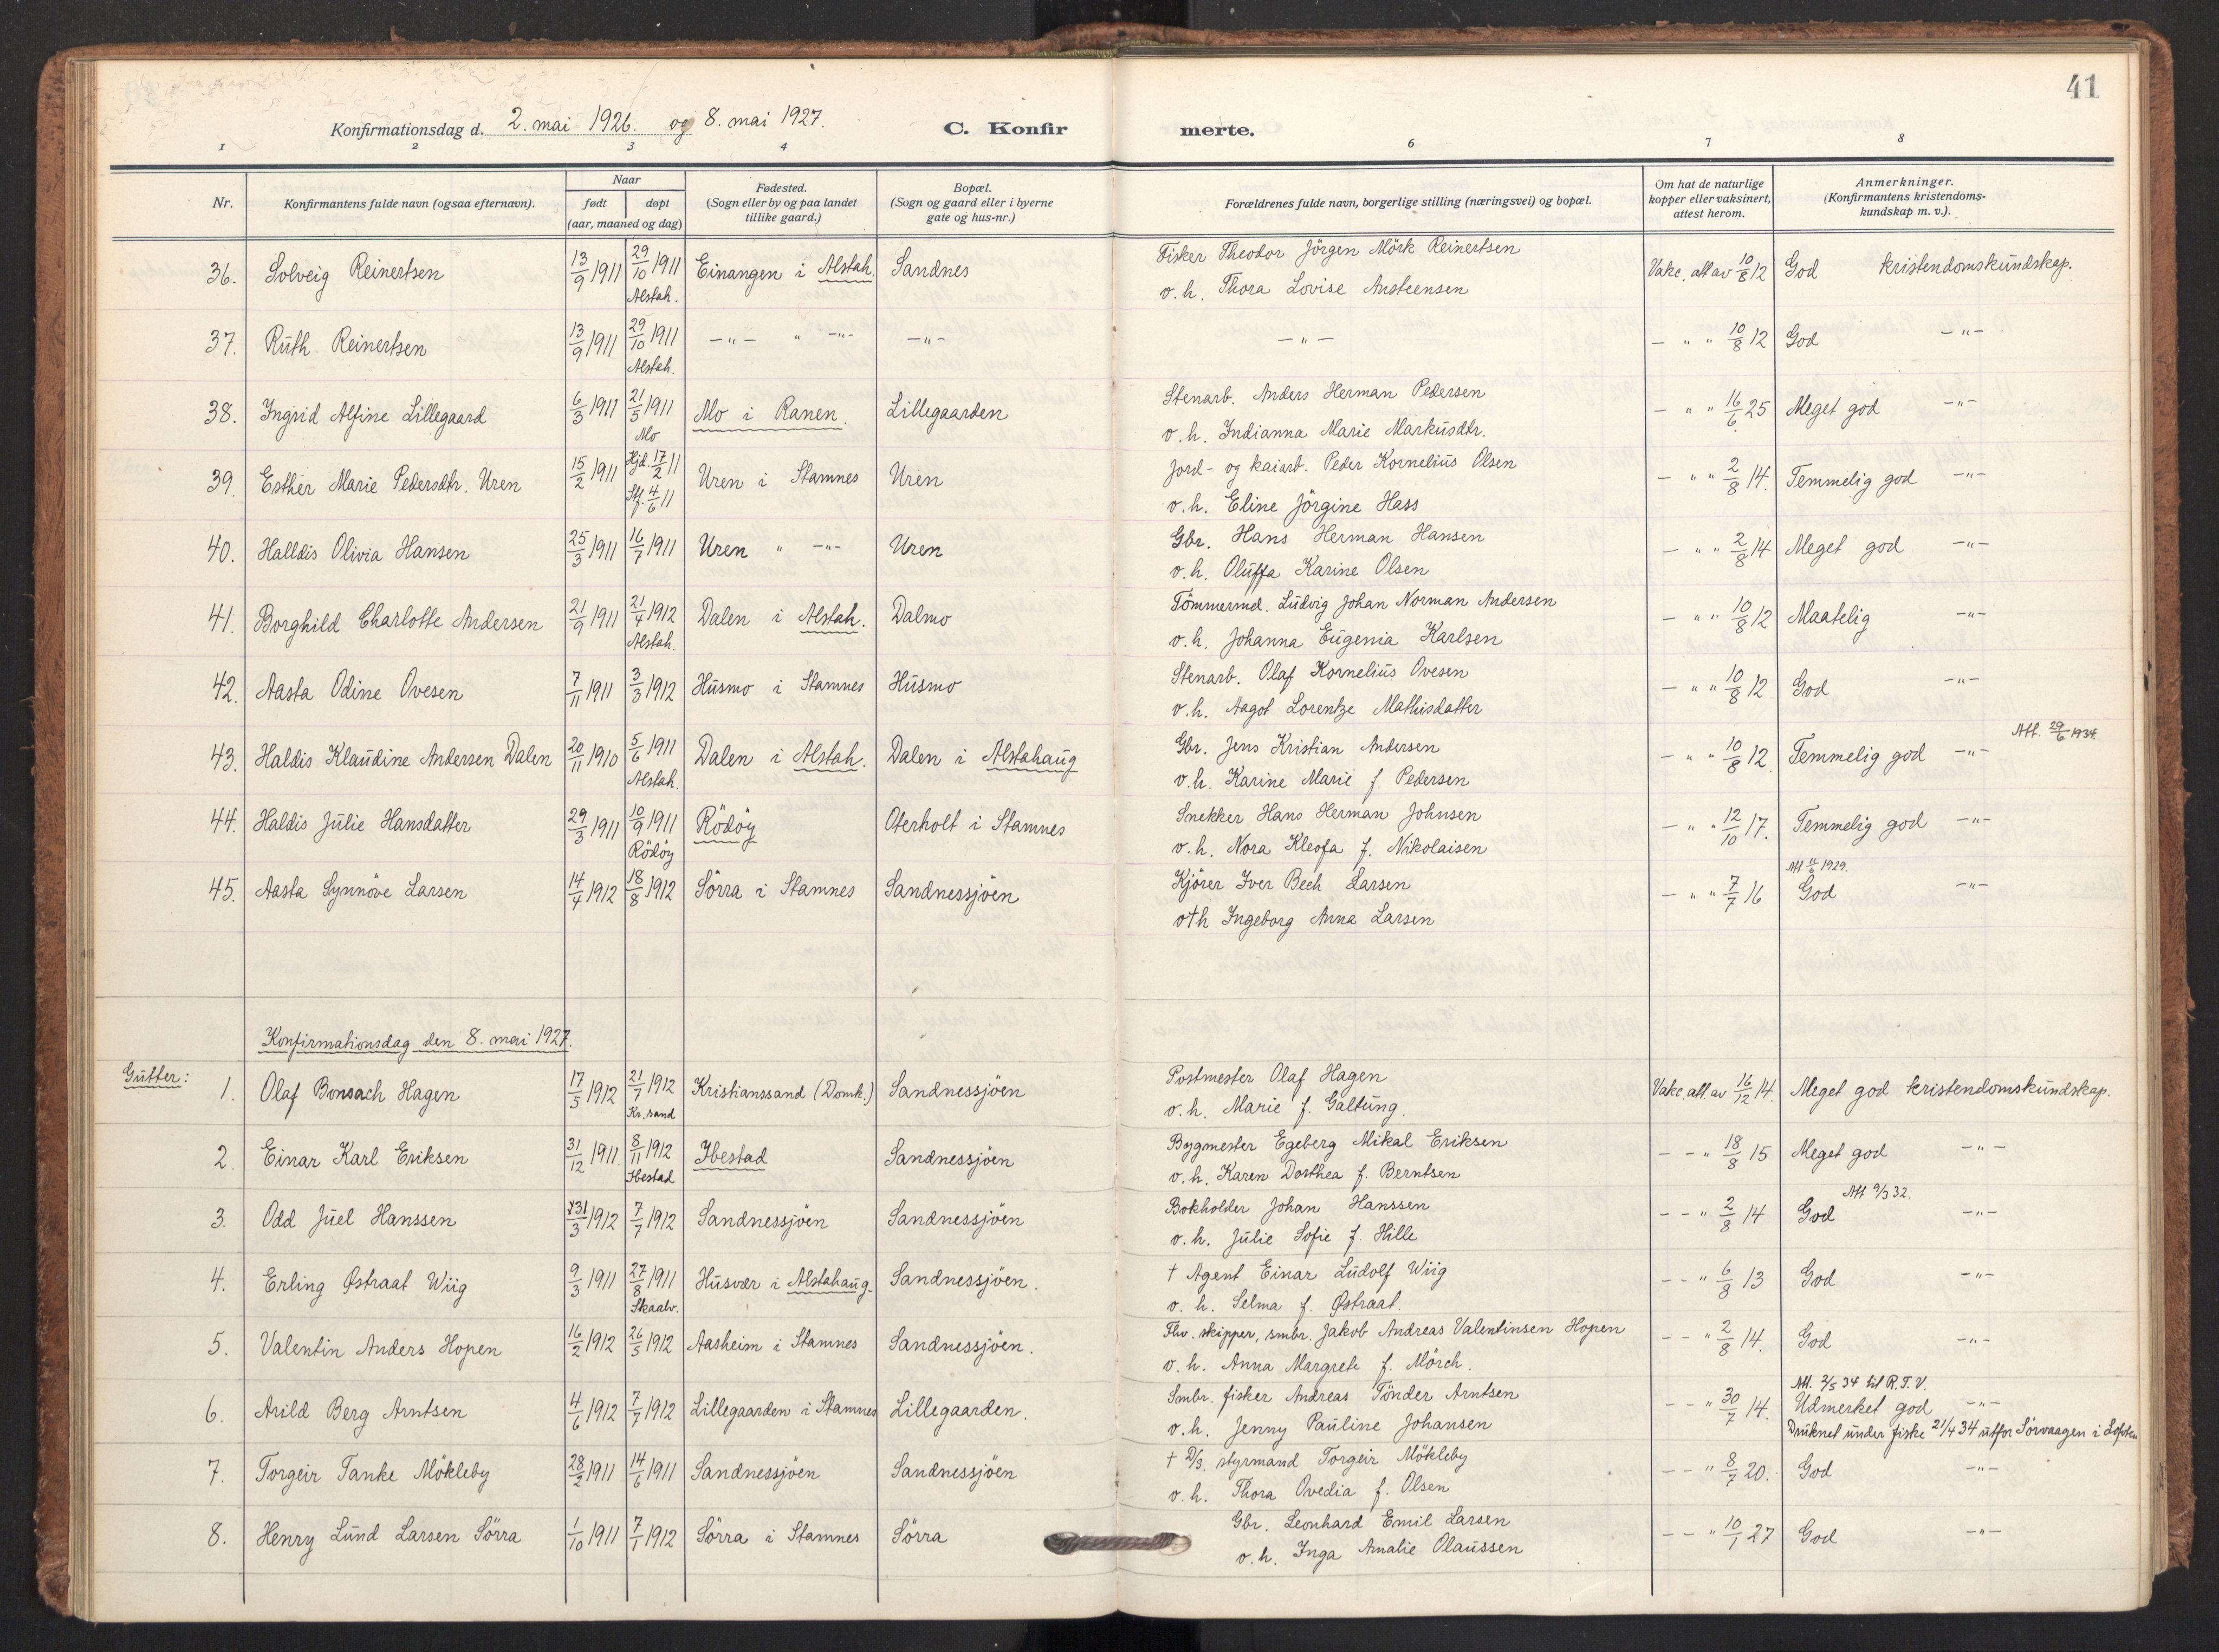 41
Konfirmationsdag d. 2. mai 1926. og 8. mai 1927. C. Konfirmerte.
1 2 3 4 6 7 8
Nr. Konfirmantens fulde navn (ogsaa efternavn). Naar født døpt (aar, maaned og dag) Fødested. (Sogn eller by og paa landet tillike gaard.) Bopæl. (Sogn og gaard eller i byerne gate og hus-nr.) Forældrenes fulde navn, borgerlige stilling (næringsvei) og bopæl. Om hat de naturlige kopper eller vaksinert, attest herom. Anmerkninger. (Konfirmantens kristendomskundskap m. v.).
36. Solveig Reinertsen 13/9 1911 29/10 1911 Alstah. Einangen i Alstah. Sandnes Fisker Theodor Jörgen Mörk Reinertsen
o. h. Thora Lovise Austeensen Vakc. att av 10/8 12 God kristendomskundskap.
37. Ruth Reinertsen 13/9 1911 29/10 1911 Alstah. -"- " -"- -"- -"- - " " 10/8 12 God -"-
38. Ingrid Alfine Lillegaard 6/3 1911 21/5 1911 Mo Mo i Ranen. Lillegaarden Stenarb. Anders Herman Pedersen
o. h. Indianna Marie Markusdtr. - " " 16/6 25 Meget god -"-
39. Esther Marie Pedersdtr. Uren 15/2 1911 Hjd. 17/2 11 Stf. 4/6 11 Uren i Stamnes Uren Jord- og kaiarb. Peder Kornelius Olsen
o. h. Eline Jörgine Hass - " " 2/8 14. Temmelig god -"-
40. Halldis Olivia Hansen 25/3 1911 16/7 1911 Uren " -"- Uren Gbr. Hans Herman Hansen
o. h. Oluffa Karine Olsen - " " 2/8 14 Meget god -"-
41. Borghild Charlotte Andersen 21/9 1911 21/4 1912 Alstah. Dalen i Alstah. Dalmo Tömmermd. Ludvig Johan Norman Andersen
o. h. Johanna Eugenia Karlsen - " " 10/8 12 Maatelig -"-
42. Aasta Odine Ovesen 7/11 1911 3/3 1912 Husmo i Stamnes Husmo Stenarb. Olaf Kornelius Ovesen
o. h. Aagot Lorentze Mathisdatter - " " 10/8 12 God -"-
Att. 29/6 1934
43. Haldis Klaudine Andersen Dalen 20/11 1910 5/6 1911 Alstah. Dalen i Alstah. Dalen i Alstahaug Gbr. Jens Kristian Andersen
o. h. Karine Marie f. Pedersen - " " 10/8 12. Temmelig god -"-
44. Haldis Julie Hansdatter 29/3 1911 10/9 1911 Rödöy Rödöy Oterholt i Stamnes Snekker Hans Herman Johnsen
o. h. Nora Kleofa f. Nikolaisen - " " 12/10 17. Temmelig god -"-
Att 11/6 1929.
45. Aasta Synnöve Larsen 14/4 1912 18/8 1912 Sörra i Stamnes Sandnessjöen Kjörer Iver Bech Larsen
o†h Ingeborg Anna Larsen - " " 7/7 16 God -"-
Konfirmationsdag den 8. mai 1927.
Gutter:
1. Olaf Bonsach Hagen 17/5 1912 21/7 1912 Kr. sand Kristianssand (Domk.) Sandnessjöen Postmester Olaf Hagen
o. h. Marie f. Galtung. Vakc. att. av 16/12 14. Meget god kristendomskundskap.
2. Einar Karl Eriksen 31/12 1911. 8/11 1912 Ibestad Ibestad Sandnessjöen Bygmester Egeberg Mikal Eriksen
o. h. Karen Dorthea f. Berntsen - - " 18/8 15 Meget god -"-
Att 9/3 32.
3. Odd Juel Hanssen 31/3 1912 7/7 1912 Sandnessjöen Sandnessjöen Bokholder Johan Hanssen
o. h. Julie Sofie f. Hille - - " 2/8 14 God -"-
4. Erling Østraat Wiig 9/3 1911 27/8 1911 Skaalv. Husvær i Alstahaug. Sandnessjöen. † Agent Einar Ludolf Wiig
o. h. Selma f. Østraat. - - " 6/8 13 God -"-
5. Valentin Anders Hopen 16/2 1912 26/5 1912 Aasheim i Stamnes Sandnessjöen. Fhv. skipper, smbr. Jakob Andreas Valentinsen Hopen
o. h. Anna Margrete f. Mörch. - - " 2/8 14. God -"-
Att. 2/5 34 til R.T.V.
6. Arild Berg Arntsen 4/6 1912 7/7 1912 Lillegaarden i Stamnes Lillegaarden. Smbr. fisker Andreas Tönder Arntsen
o. h. Jenny Pauline Johansen - - " 30/7 14. Udmerket god -"-
Druknet under fiske 21/4 34 utfor Sörvaagen i Lofoten
7. Torgeir Tanke Mökleby 28/2 1911 14/6 1911 Sandnessjöen Sandnessjöen † D/S. styrmand Torgeir Mökleby
o. h. Thora Ovedia f. Olsen - - " 8/7 20. God -"-
8. Henry Lund Larsen Sörra 1/10 1911 7/1 1912 Sörra i Stamnes Sörra Gbr. Leonhard Emil Larsen
o. h. Inga Amalie Olaussen - - " 10/1 27 God -"-